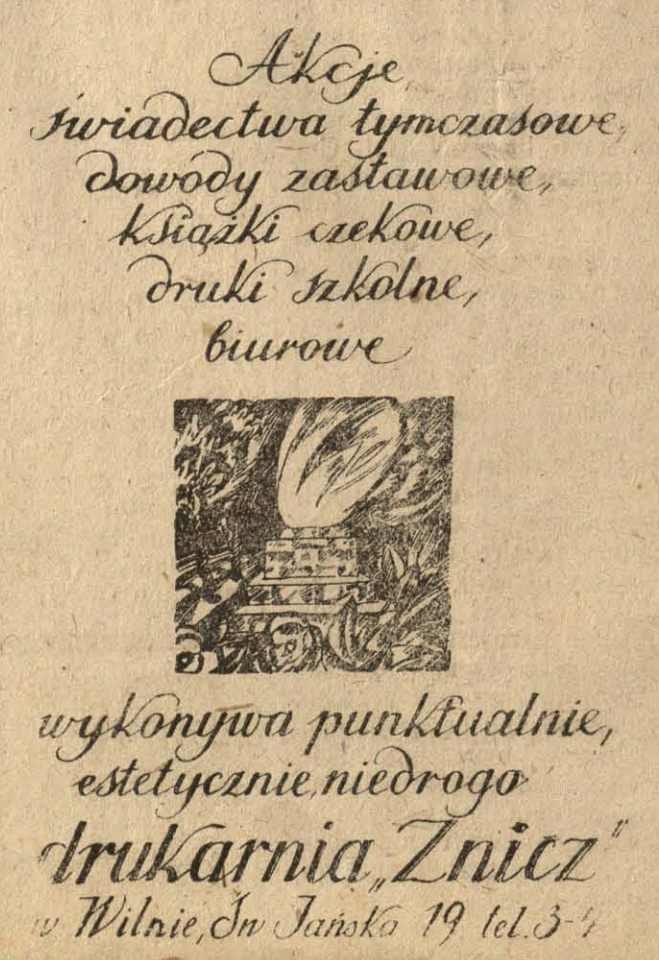 Akcje
świadectwa tymczasowe,
dowody zastawowe,
książki czekowe,
druki szkolne,
biurowe
wykonywa punktualnie,
estetycznie, niedrogo
drukarnia „Znicz”
w Wilnie, Św Jańska 19 tel.